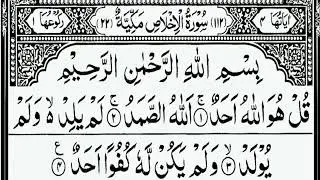 اٰيَاتُهَا ٤ (١١٢) سُوْرَةُ الْاِخْلَاصِ مَكِّيَّةٌ (٢٢) رُكُوْعُهَا ١
بِسْمِ اللّٰهِ الرَّحْمٰنِ الرَّحِيْمِ
قُلْ هُوَ اللّٰهُ اَحَدٌ ۚ ١ اَللّٰهُ الصَّمَدُ ۚ ٢ لَمْ يَلِدْ ۙ وَلَمْ
يُوْلَدْ ۙ ٣ وَلَمْ يَكُنْ لَّهٗ كُفُوًا اَحَدٌ ٤ ع